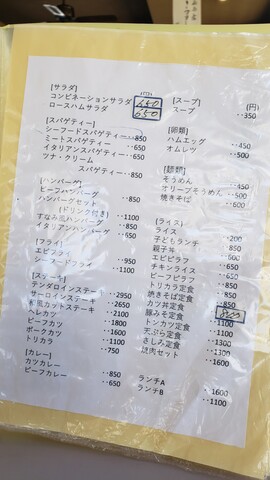 [サラダ]
コンビネーションサラダ 650
ロースハムサラダ 650
[スパゲティー]
シーフードスパゲティー‥850
ミートスパゲティー ‥650
イタリアンスパゲティー‥650
ツナ・クリーム
スパゲティー ‥850
[ハンバーグ]
ビーフハンバーグ ‥850
ハンバーグセット
(ドリンク付き) ‥1100
すなみ風ハンバーグ ‥850
イタリアンハンバーグ ‥850
[フライ]
エビフライ ‥950
シーフードフライ ‥1100
[ステーキ]
テンダロインステーキ ‥2950
サーロインステーキ ‥2650
和風カットステーキ ‥2100
ヘレカツ ‥1800
ビーフカツ ‥1600
ポークカツ ‥1100
トリカラ ‥750
[カレー]
カツカレー ‥850
ビーフカレー ‥650
[スープ] (円)
スープ ‥350
[卵類]
ハムエッグ ‥450
オムレツ ‥500
[麺類]
そうめん ‥450
オリーブそうめん ‥500
焼きそば ‥600
[ライス]
ライス ‥200
子どもランチ ‥650
親子丼 ‥650
エビピラフ ‥600
チキンライス ‥650
ビーフピラフ ‥650
トリカラ定食 ‥850
焼きそば定食 ‥850
カツ丼定食 ‥850
豚みそ定食 800
トンカツ定食 ‥1100
天ぷら定食 ‥1100
さしみ定食 ‥1300
焼肉セット ‥1300
ランチA ‥1600
ランチB ‥1100